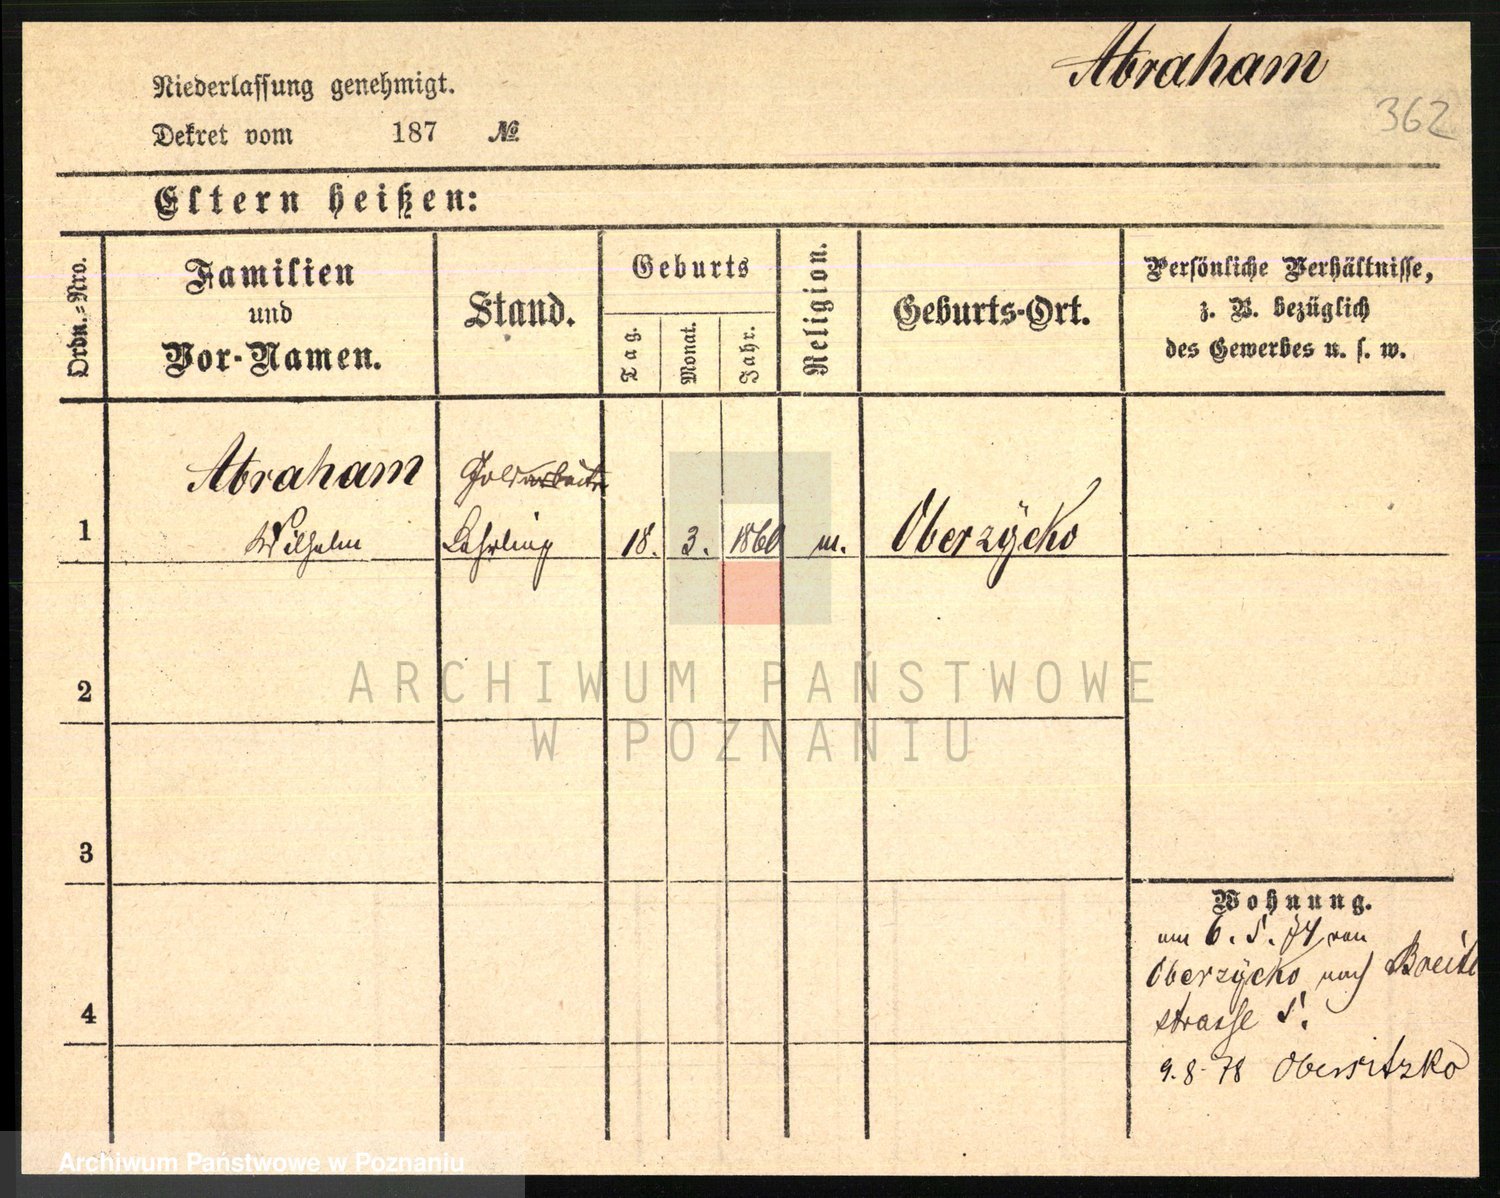 Abraham
362
Niederlassung genehmigt.
Dekret vom 187 №
Eltern heißen:
Ordn.=Nro.
Familien
und
Vor-Namen.
Stand.
Geburts
Tag.
Monat.
Jahr.
Religion.
Geburts-Ort.
Persönliche Verhältnisse,
z. B. bezüglich
des Gewerbes u. s. w.
Abraham Goldarbeiter
1 Wilhelm Lehrling 18. 3. 1860 m. Oberzÿcko
2
3
4
Wohnung.
am 6. 5. 74 von
Oberzÿcko nach Breite
strasse 5.
9. 8. 78 Obersitzko
ARCHIWUM PAŃSTWOWE
W POZNANIU
Archiwum Państwowe w Poznaniu